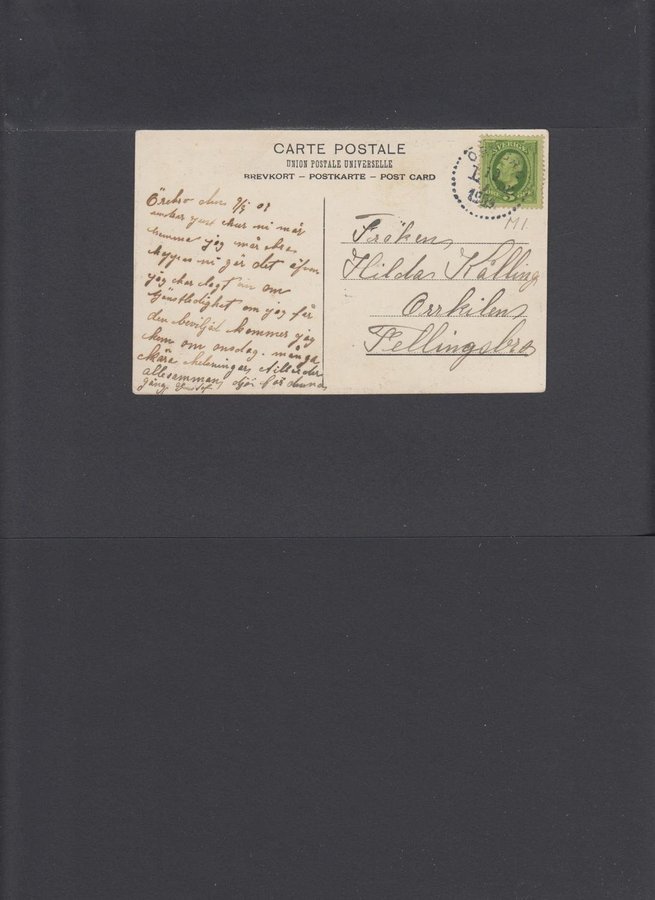 CARTE POSTALE
UNION POSTALE UNIVERSELLE
BREVKORT – POSTKARTE – POST CARD
Örebro den 9/5 07
önskar just hur ni mår
hemma jag mår bra
hoppas ni gör det äfven
jag har lagt in om
tjänstledighet om jag får
den beviljad kommer jag
hem om onsdag. många
kära helsningar till eder
allesammans
Fröken
Hilda Källing
Orrkilen
Fellingsbro
SVERIGE
5
M1